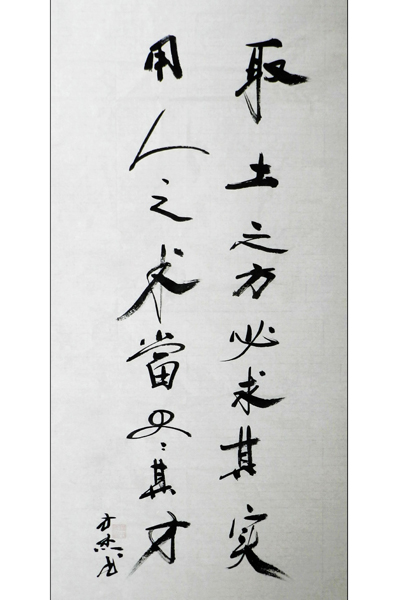 取土之方必求其实
用人之术當尽其才
方杰书